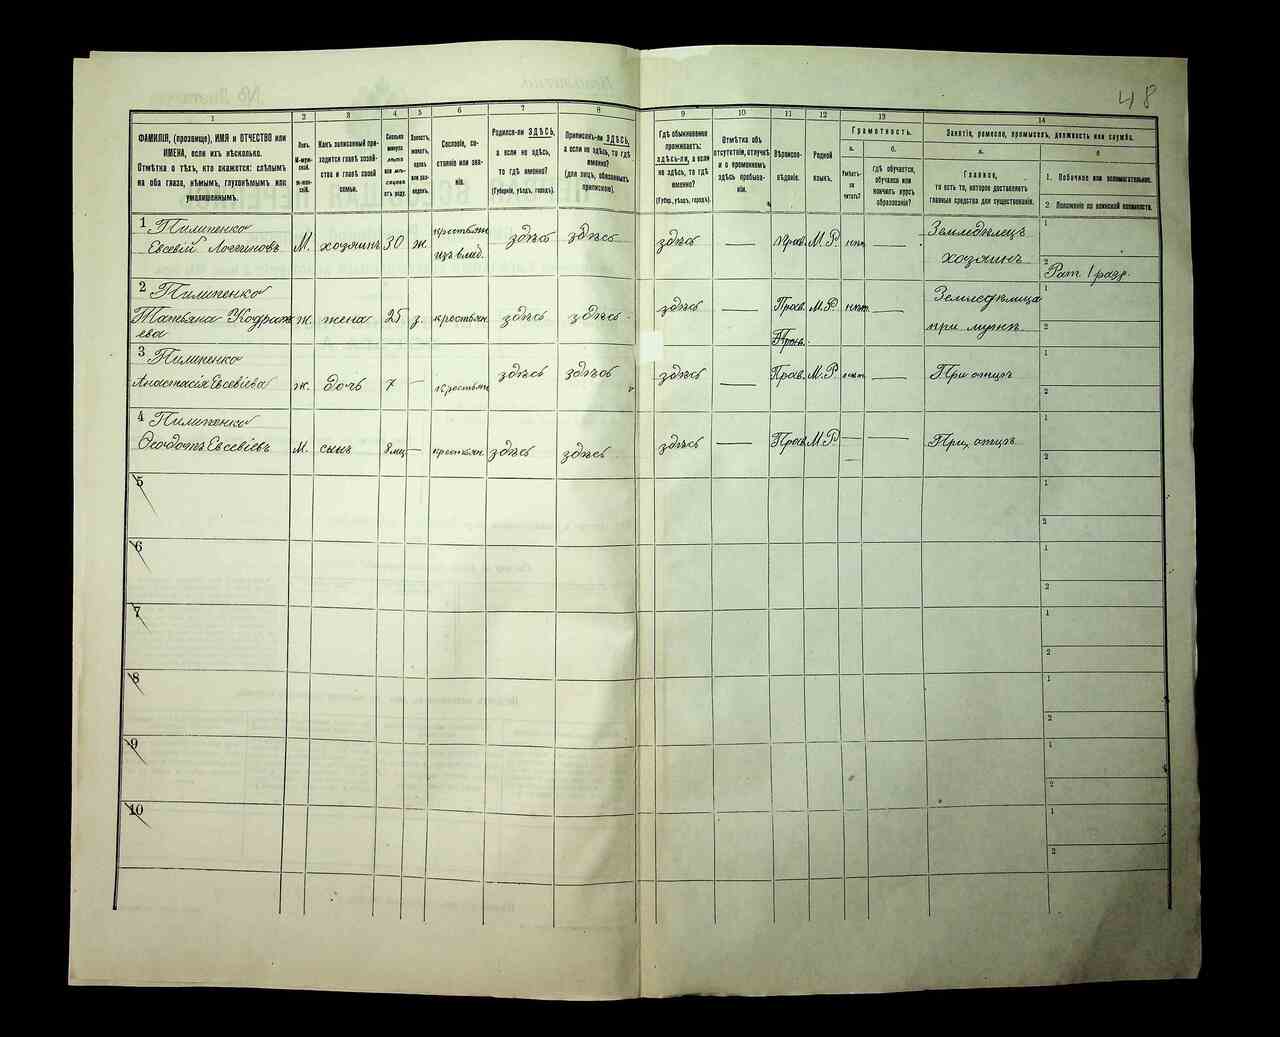 48
1
2
3
4
5
6
7
8
9
10
11
12
13
14
ФАМИЛІЯ, (прозвище), ИМЯ и ОТЧЕСТВО или
ИМЕНА, если ихъ нѣсколько.
Отмѣтка о тѣхъ, кто окажется: слѣпымъ
на оба глаза, нѣмымъ, глухонѣмымъ или
умалишеннымъ.
Полъ.
М-муж-
ской.
ж-жен-
скій.
Какъ записанный при-
ходится главѣ хозяй-
ства и главѣ своей
семьи.
Сколько
минуло
лѣтъ
или мѣ-
сяцевъ
отъ роду.
Холостъ,
женатъ,
вдовъ
или раз-
веденъ.
Сословіе, со-
стояніе или зва-
ніе.
Родился-ли ЗДѢСЬ,
а если не здѣсь,
то гдѣ именно?
(Губернія, уѣздъ, городъ).
Приписанъ-ли ЗДѢСЬ,
а если не здѣсь, то гдѣ
именно?
(для лицъ, обязанныхъ
припискою).
Гдѣ обыкновенно
проживаетъ:
здѣсь-ли, а если
не здѣсь, то гдѣ
именно?
(Губер., уѣздъ, городъ).
Отмѣтка объ
отсутствіи, отлучкѣ
и о временномъ
здѣсь пребыва-
ніи.
Вѣроиспо-
вѣданіе.
Родной
языкъ.
Грамотность.
а.
б.
Умѣетъ-
ли
читать?
гдѣ обучается,
обучался или
кончилъ курсъ
образованія?
Занятіе, ремесло, промыселъ, должность или служба.
а.
б
Главное,
то есть то, которое доставляетъ
главныя средства для существованія.
1. Побочное или вспомогательное.
2 Положеніе по воинской повинности.
1 Пилипенко
Евсевій Логгиновъ М. хозяинъ 30 ж. крестьян. изъ влад. здѣсь здѣсь здѣсь — Прав. М.Р. нѣтъ — Земледѣлецъ
хозяинъ
1
2
Рат. 1 разр.
2 Пилипенко
Татьяна Кодрать
ева ж. жена 25 з. крестьян. здѣсь здѣсь здѣсь — Прав. М.Р. нѣтъ — Земледѣлица
при мужѣ
Прав.
1
2
3 Пилипенко
Анастасія Евсевіева ж. дочь 7 — крестьян здѣсь здѣсь здѣсь — Прав. М.Р. нѣтъ — При отцѣ
1
2
4 Пилипенко
Ѳеодотъ Евсевіевъ М. сынъ 8 мц — крестьян. здѣсь здѣсь здѣсь — Прав. М.Р. — — При отцѣ
1
2
5
1
2
6
1
2
7
1
2
8
1
2
9
1
2
10
1
2